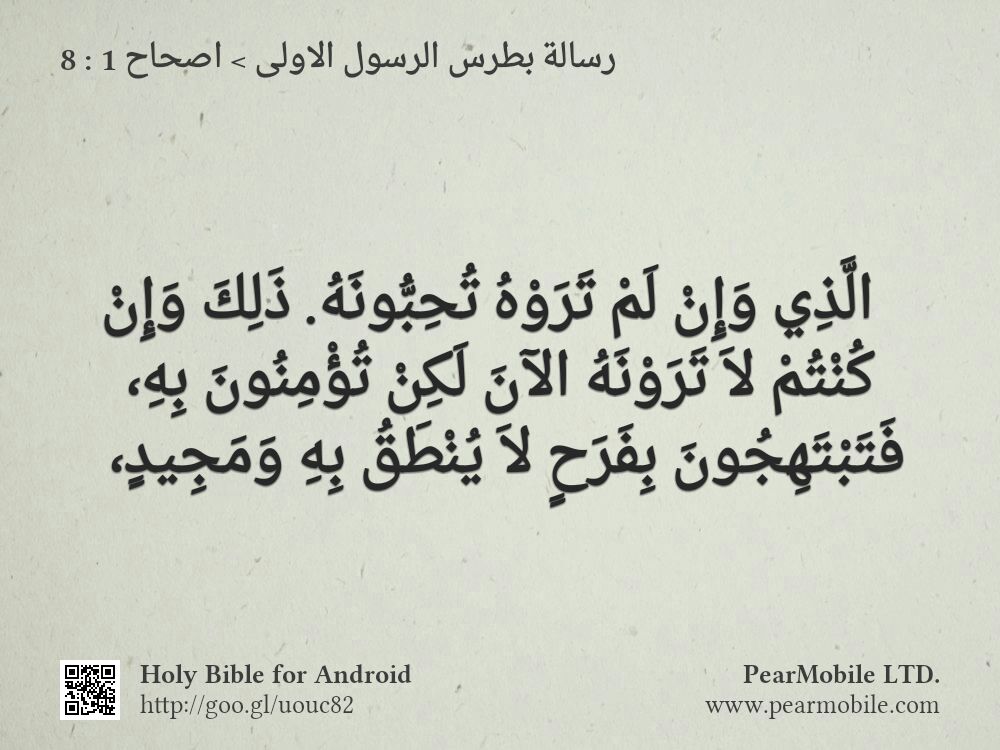 رسالة بطرس الرسول الاولى > اصحاح 1 : 8
الَّذِي وَإِنْ لَمْ تَرَوْهُ تُحِبُّونَهُ. ذَلِكَ وَإِنْ
كُنْتُمْ لاَ تَرَوْنَهُ الآنَ لَكِنْ تُؤْمِنُونَ بِهِ،
فَتَبْتَهِجُونَ بِفَرَحٍ لاَ يُنْطَقُ بِهِ وَمَجِيدٍ،
Holy Bible for Android
http://goo.gl/uouc82
PearMobile LTD.
www.pearmobile.com